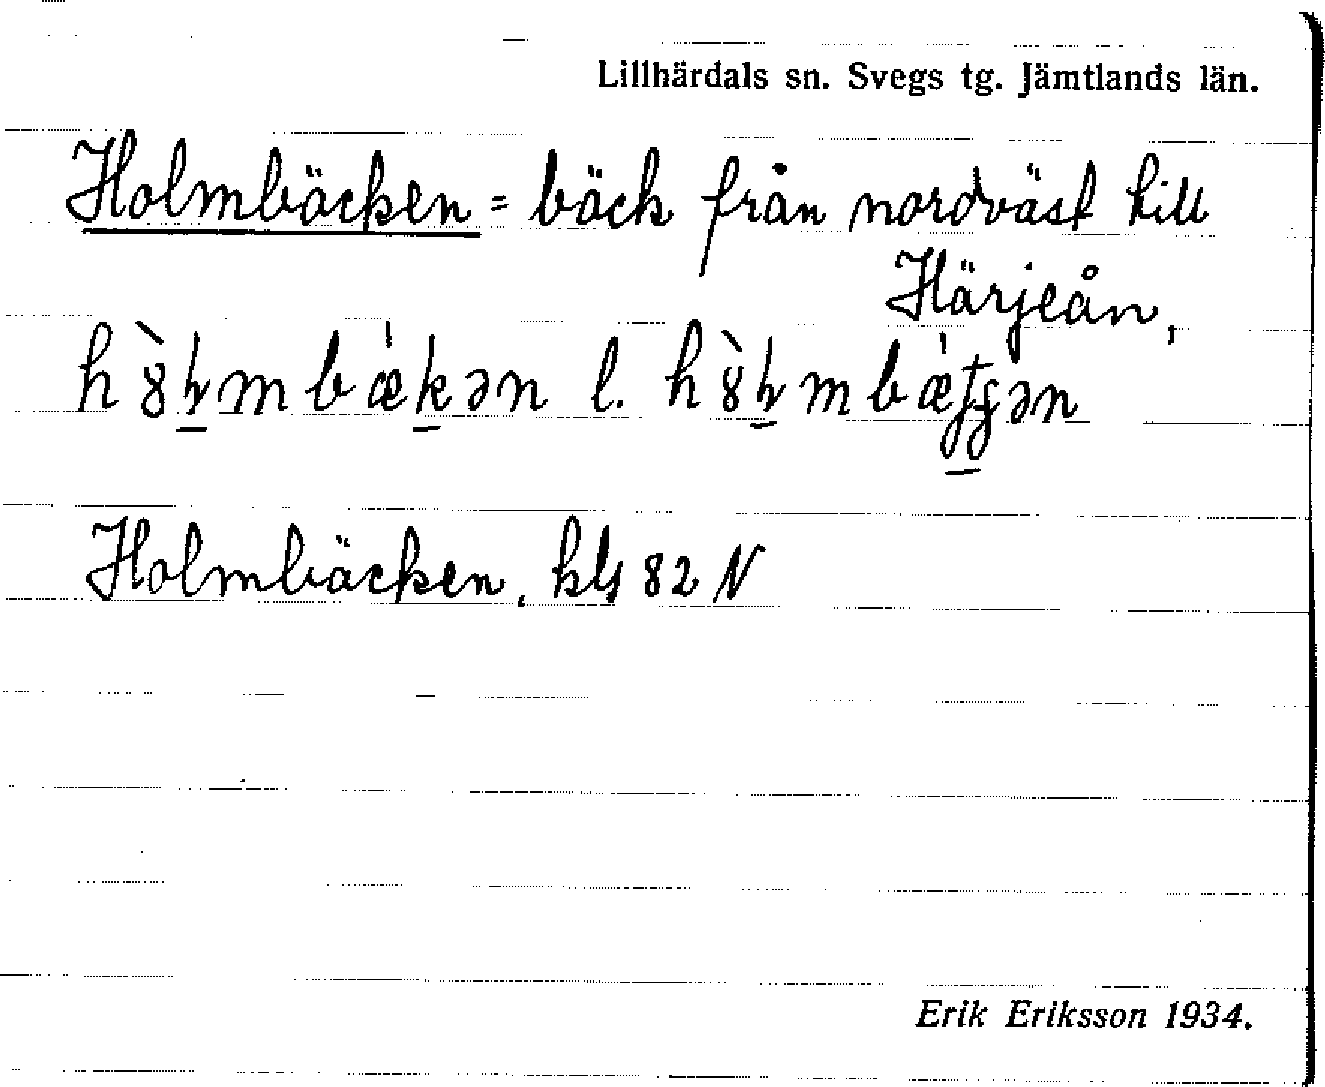 Lillhärdals sn. Svegs tg. Jämtlands län.
Holmbäcken = bäck från nordväst till
Härjeån,
l.
Holmbäcken, kbl 82 N
Erik Eriksson 1934.